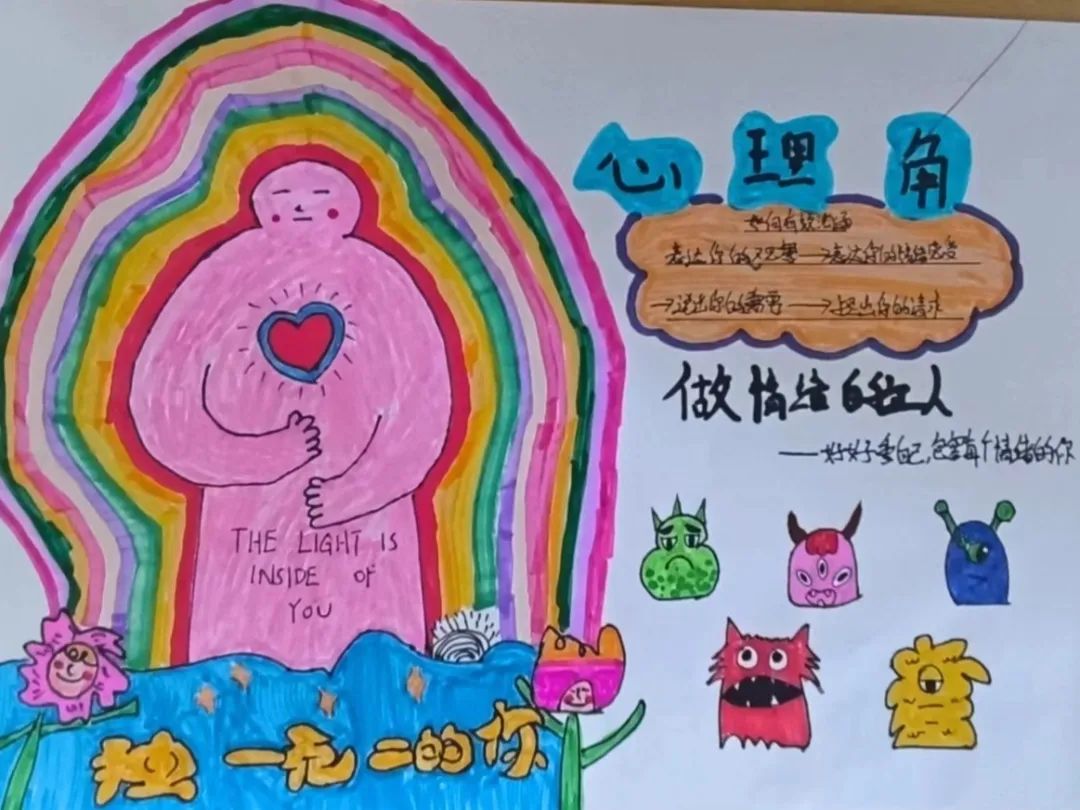 心理角
如何有效沟通
表达你的不愿→表达你的情绪感受
→说出你的需要→提出你的请求
做情绪的主人
——好好爱自己,包容每个情绪的你
THE LIGHT IS
INSIDE OF
YOU
独一无二的你